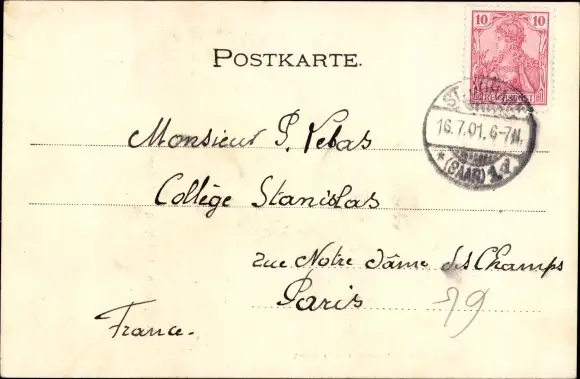 10 10
POSTKARTE.
ST. JOHANN
16.7.01.6-7N.
* (SAAR) 1.d
Monsieur P. Vebas
Collège Stanislas
rue Notre Dâme des Champs
Paris
79
France.